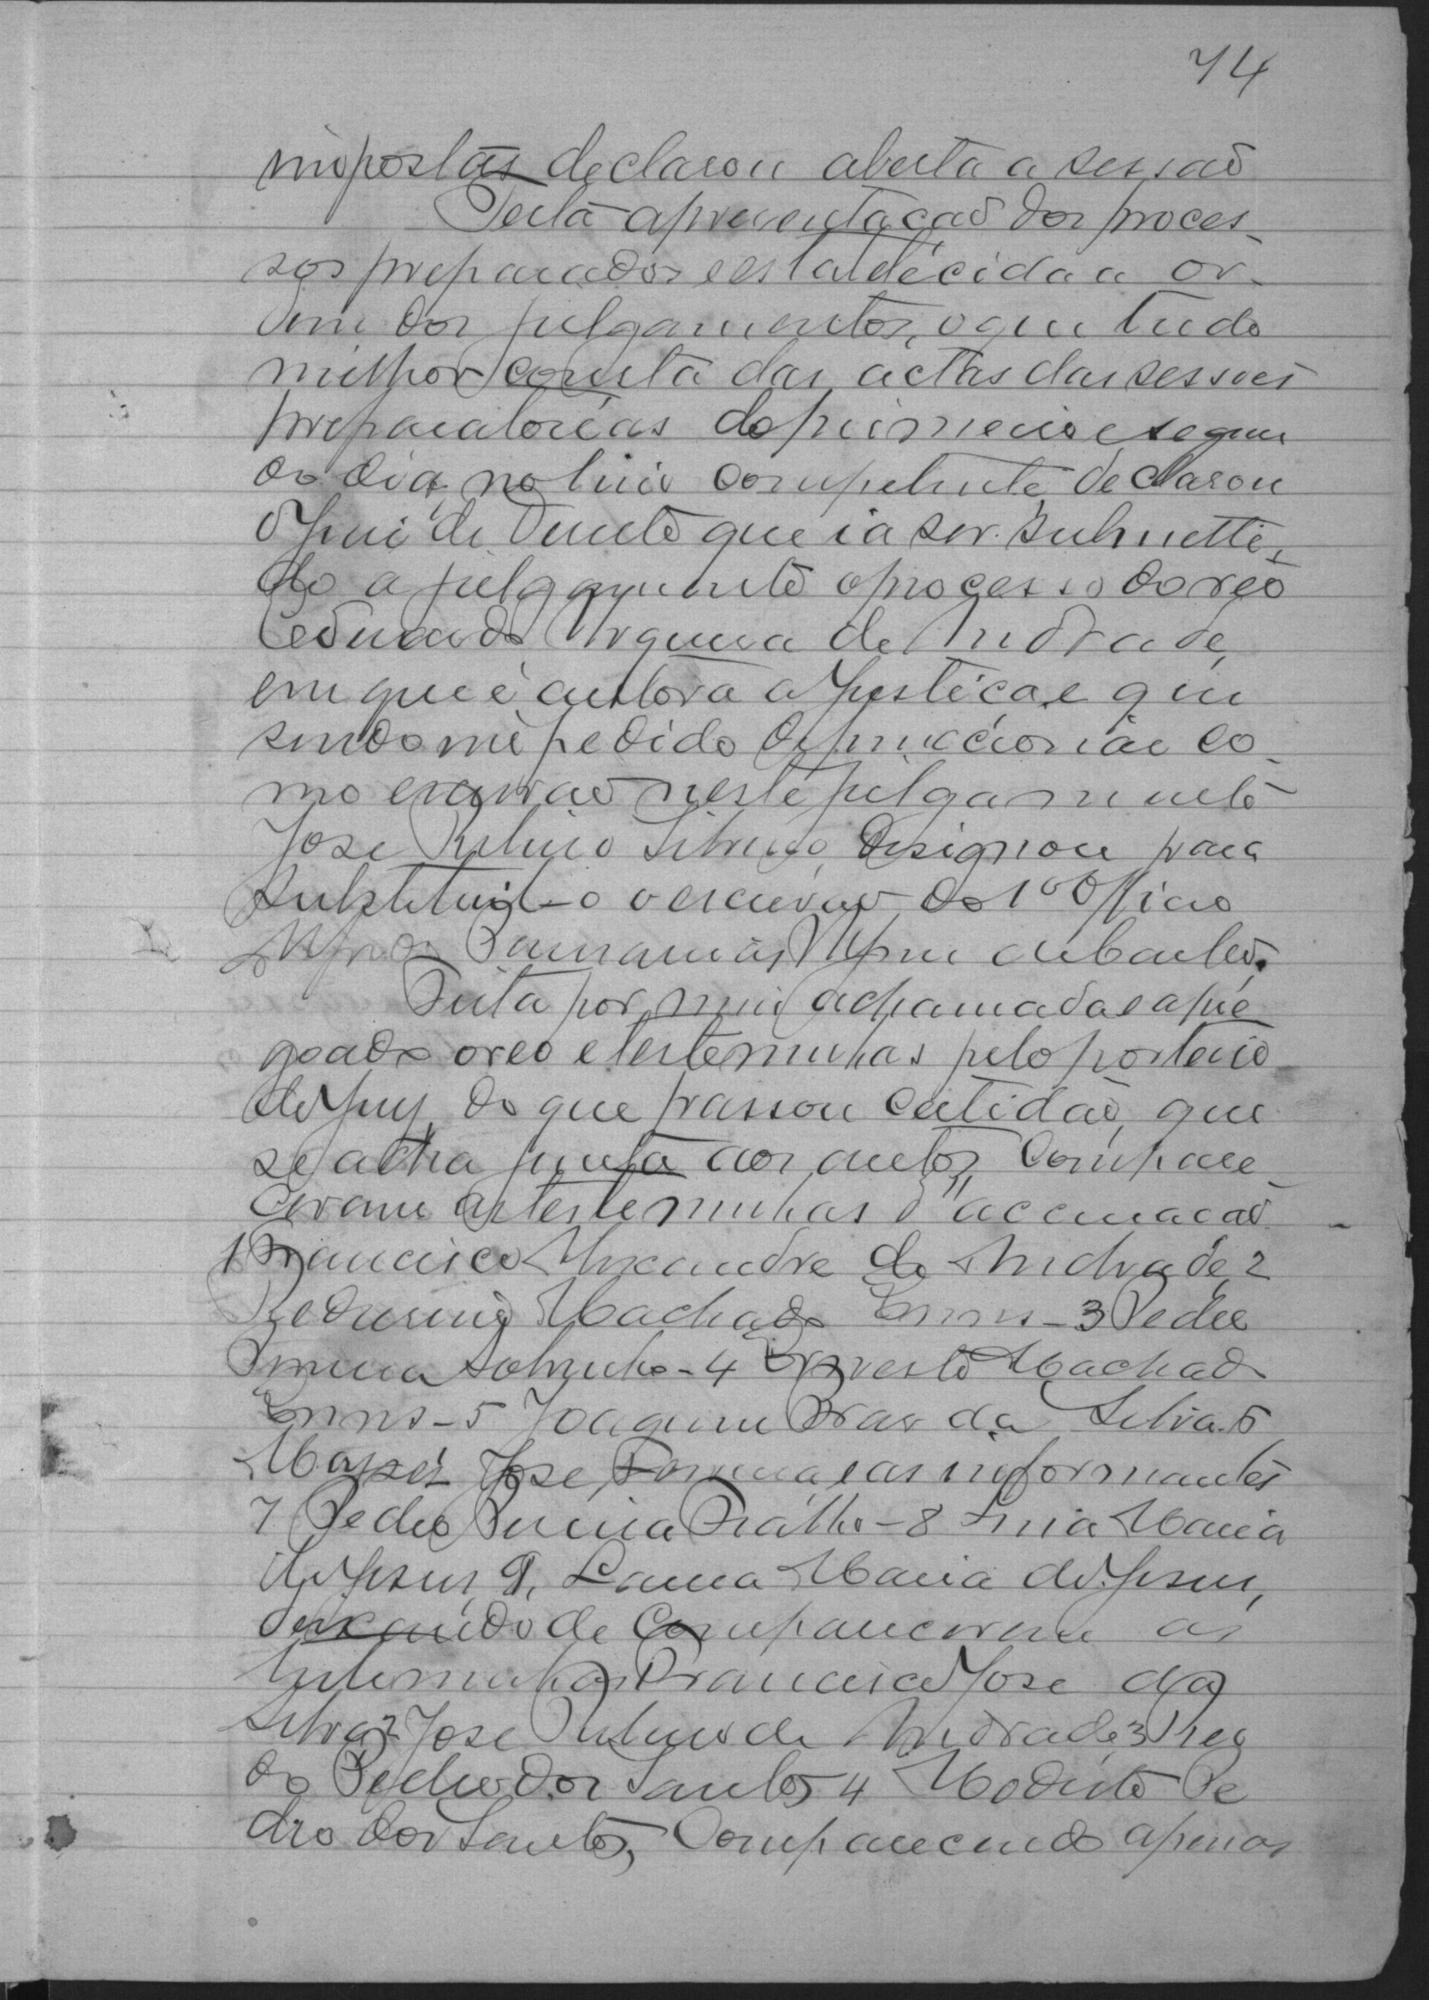 74
impostas declarou aberta a sessaõ
Feita apresentaçaõ dos proces-
sos preparados e estabelécida a or-
dem dos julgamentos, o que tudo
milhor consta das actas das sessoes
preparatorias do primeiro e segun
do dia, no livro competente, declarou
o Juiz de Direito que ia ser submetti-
do a julgamento o processo do reo
Eduardo Cirqueira de Andrade,
em que é autora a Justiça, e que
sendo impedido de funccionar co-
mo escrivaõ neste julgamento
Jose Rabino Silverio, designou para
substituil-o o escrivaõ do 1º Officio
Feita por mim a chamada e apre
goado o reo e testeminhas pelo porteiro
do Jury, do que passou certidaõ, que
se acha junta aos autos, Compare-
ceram as testeminhas d'accusaçaõ
1 Francisco Alixandre de Andrade, 2
Machado - 3 Pedro
Pereira Sobrinho - 4 Ernesto Machado
- 5 Joaquim Braz da Silva. 6
Moysés Jose e as informantes
7 Pedro Pereira - 8 Anna Maria
de Jesus, 9, Laura Maria de Jesus,
deixando de comparecerem as
testeminhas Francisco Jose da
Silva 2 Jose de Andrade, 3
do Pedro dos Santos 4 Modesto Pe
dro dos Santos, Comparecendo apenas